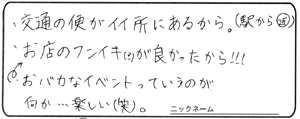 ・交通の便がイイ所にあるから。(駅から近)
・お店のフンイキ(?)が良かったから!!!
・おバカなイベントっていうのが
何か…楽しい(笑)。
ニックネーム